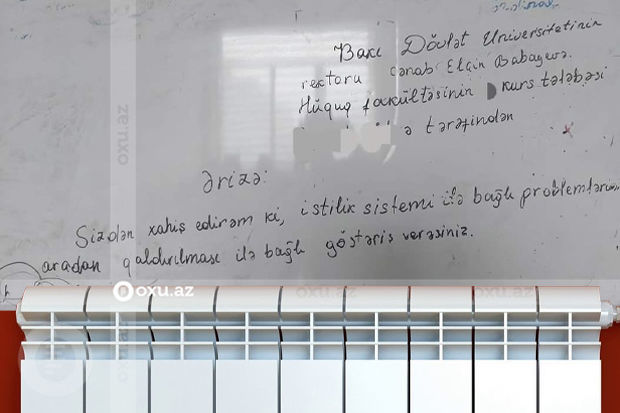 Bakı Dövlət Universitetinin
rektoru cənab Elçin Babayevə.
Hüquq fakültəsinin kurs tələbəsi
ə tərəfindən
Ərizə:
Sizdən xahiş edirəm ki, istilik sistemi ilə bağlı problemlərin
aradan qaldırılması ilə bağlı göstəriş verəsiniz.
oxu.az
oxu.az
oxu.az
oxu.az
oxu.az